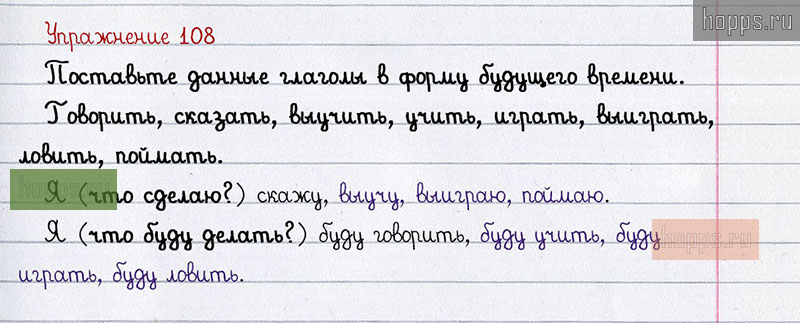 hopps.ru
Упражнение 108
Поставьте данные глаголы в форму будущего времени.
Говорить, сказать, выучить, учить, играть, выиграть,
ловить, поймать.
hopps.ru
Я (что сделаю?) скажу, выучу, выиграю, поймаю.
Я (что буду делать?) буду говорить, буду учить, буду
hopps.ru
играть, буду ловить.